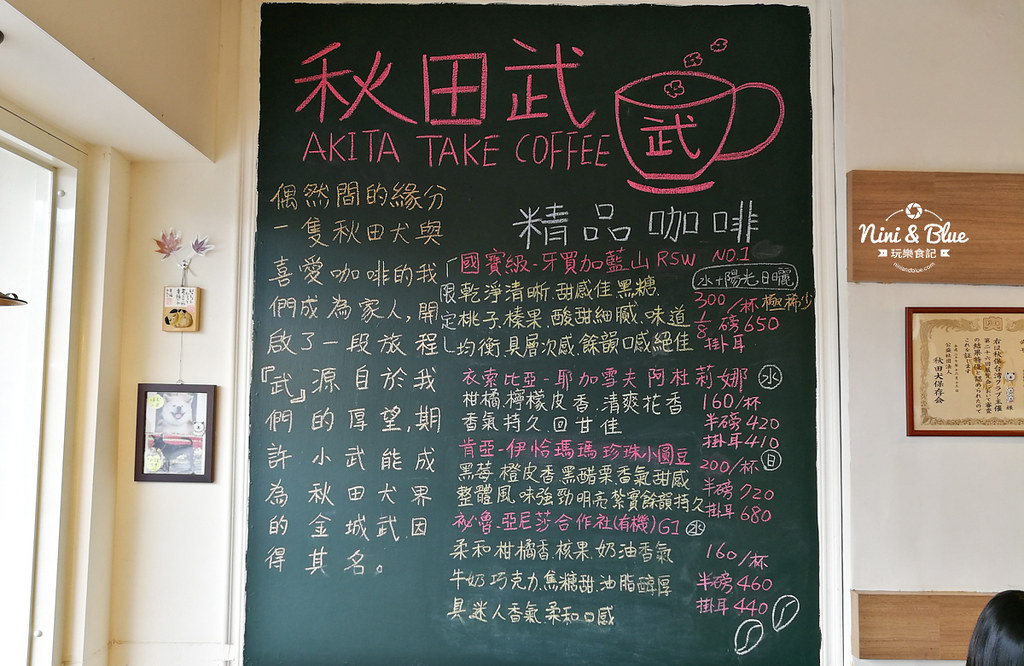 秋田武
AKITA TAKE COFFEE
武
偶然間的緣分
一隻秋田犬與
喜愛咖啡的我
們成為家人,開
啟了一段旅程
『武』源自於我
們的厚望,期
許小武能成
為秋田犬界
的金城武因
得其名。
精品咖啡
「國寶級-牙買加藍山RSW NO.1
水+陽光日曬
限乾淨清晰.甜感佳.黑糖.
300/杯 極稀少
定桃子.榛果.酸甜細膩.味道
1/8磅650
」均衡.具層次感.餘韻口感絕佳
掛耳
衣索比亞-耶加雪夫 阿杜莉娜 水
柑橘.檸檬皮香.清爽花香
160/杯
香氣持久.回甘佳
半磅420
掛耳410
肯亞-伊恰瑪瑪珍珠小圓豆
200/杯 日
黑莓.橙皮香.黑醋栗香氣甜感
半磅720
整體風.味強勁明亮紮實餘韻持久
掛耳680
祕魯.亞尼莎合作社(有機)G1 水
柔和柑橘香.核果.奶油香氣
160/杯
牛奶巧克力.焦糖甜.油脂醇厚
半磅460
具迷人香氣.柔和口感
掛耳440
Nini & Blue
玩樂食記
niniandblue.com
秋田犬保存会